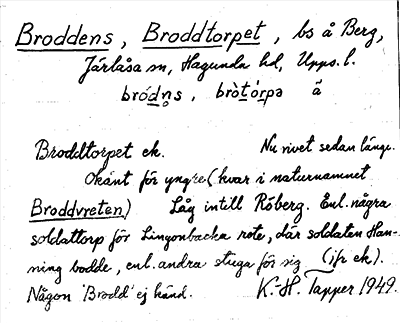 Broddens, Broddtorpet, bs å Berg,
Järlåsa sn, Hagunda hd, Upps. l.
bródn̥s, bròtórpə ä
Broddtorpet ek. Nu rivet sedan länge.
Okänt för yngre (kvar i naturnamnet
Broddvreten) Låg intill Röberg. Enl. några
soldattorp för Lingonbacka rote, där soldaten Han-
ning bodde, enl. andra stuga för sig (jfr ek).
Någon 'Brodd' ej känd. K.-H. Tapper 1949.